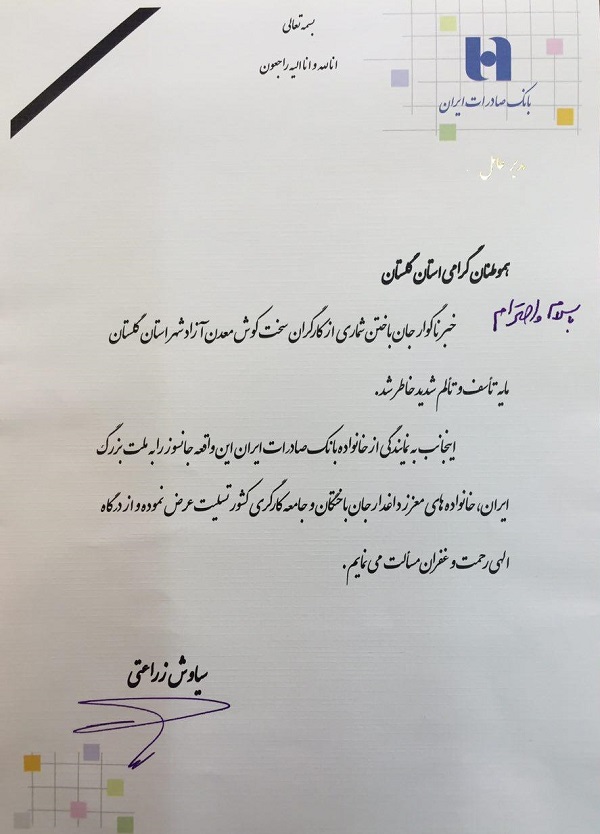 بسمه تعالی
انا لله و انا الیه راجعون
بانک صادرات ایران
مدیر عامل
هموطنان گرامی استان گلستان
با سلام و احترام
خبر ناگوار جان باختن شماری از کارگران سخت کوش معدن آزادشهر استان گلستان
مایه تأسف و تألم شدید خاطر شد.
اینجانب به نمایندگی از خانواده بانک صادرات ایران این واقعه جانسوز را به ملت بزرگ
ایران، خانواده های معزز داغدار جان باختگان و جامعه کارگری کشور تسلیت عرض نموده و از درگاه
الهی رحمت و غفران مسألت می نمایم.
سیاوش زراعتی